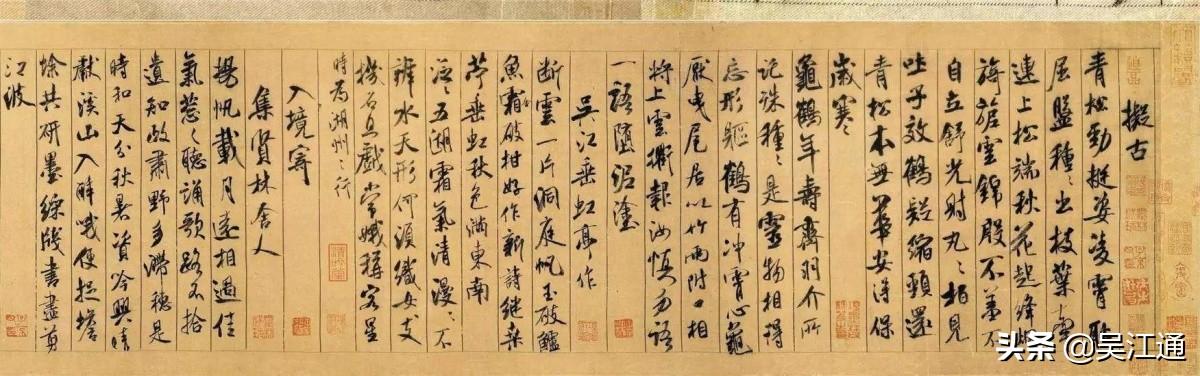 擬古
青松勁挺姿凌霄恥
屈盤種〻出枝葉牽
連上松端秋花起絳煙
旖旎雲錦殷不羞不
自立舒光射丸〻柏見
吐子效鶴疑縮頸還
青松本無華安得保
歲寒〻
龜鶴年壽齊羽介所
託殊種〻是靈物相得
忘形軀鶴有沖霄心龜
厭曳尾居以竹兩附口相
將上雲衢報汝慎勿語
一語墮泥塗
吳江垂虹亭作
斷雲一片洞庭帆玉破鱸
魚霜破柑好作新詩繼桑
苧垂虹秋色滿東南
泛〻五湖霜氣清漫〻不
辨水天形何須織女支
機石且戲常娥稱客星
時為湖州之行
入境寄
集賢林舍人
揚帆載月遠相過佳
氣蔥〻聽誦歌路不拾
遺知政肅野多滯穗是
時和天分秋暑資吟興晴
獻溪山入醉哦便捉蟾
蜍共研墨綵牋書盡剪
江波
头条 @吴江通